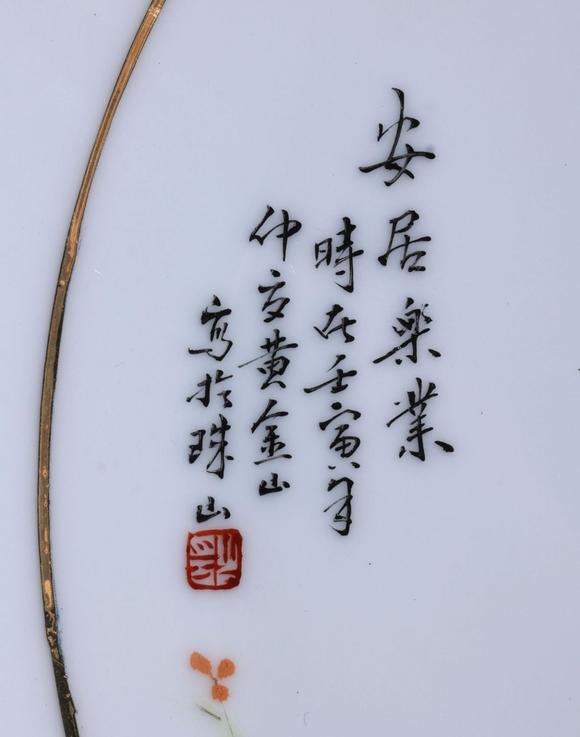 安居樂業
時在壬寅年
仲夏黃金山
寫於珠山